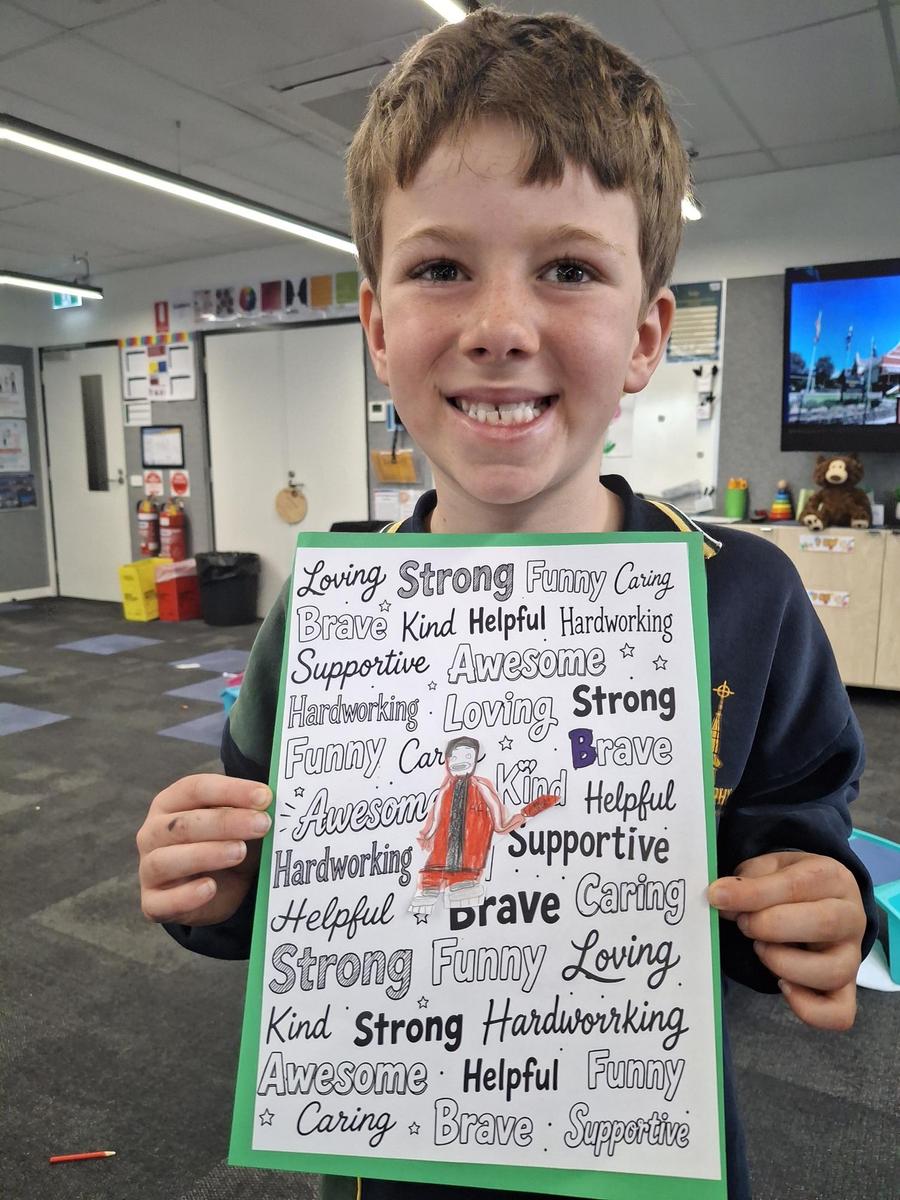 Loving Strong Funny Caring
Brave Kind Helpful Hardworking
Supportive Awesome
Hardworking Loving Strong
Funny Car Brave
Awesome Kind Helpful
Hardworking Supportive
Helpful Brave Caring
Strong Funny Loving
Kind Strong Hardworrking
Awesome Helpful Funny
Caring Brave Supportive